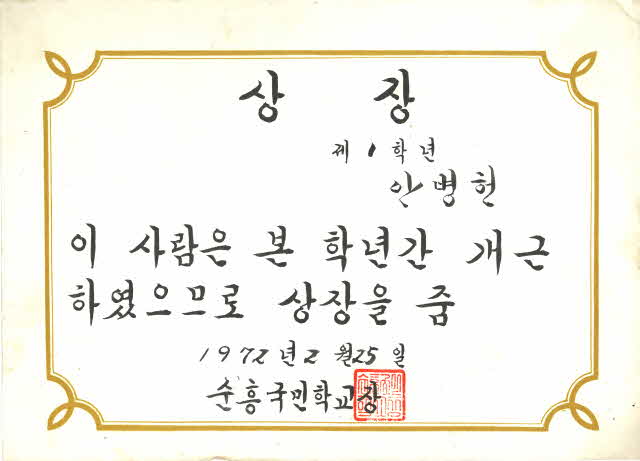 상 장
제 1 학년
안병헌
이 사람은 본 학년간 개근
하였으므로 상장을 줌
1972년 2월 25일
순흥국민학교장